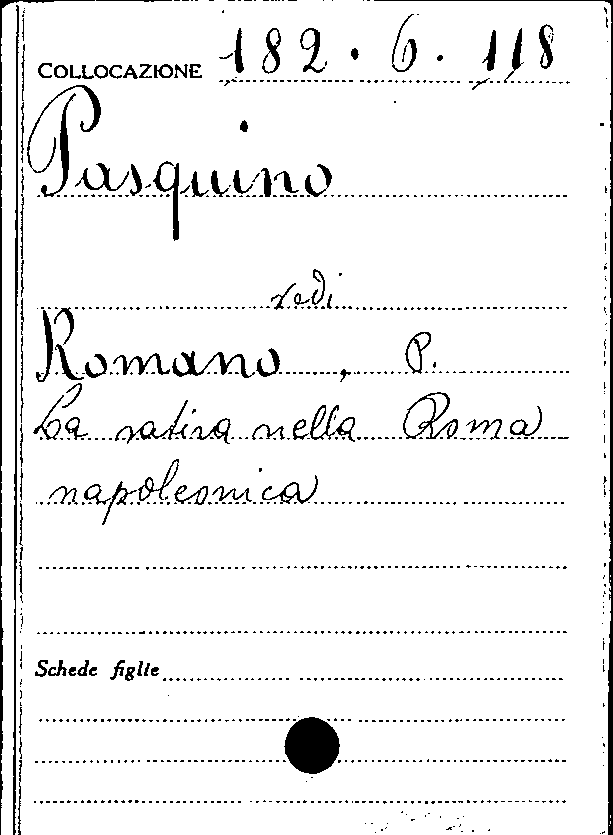 COLLOCAZIONE 182 . 6 . 118
Pasquino
vedi
Romano, P.
La satira nella Roma
napoleonica
Schede figlie